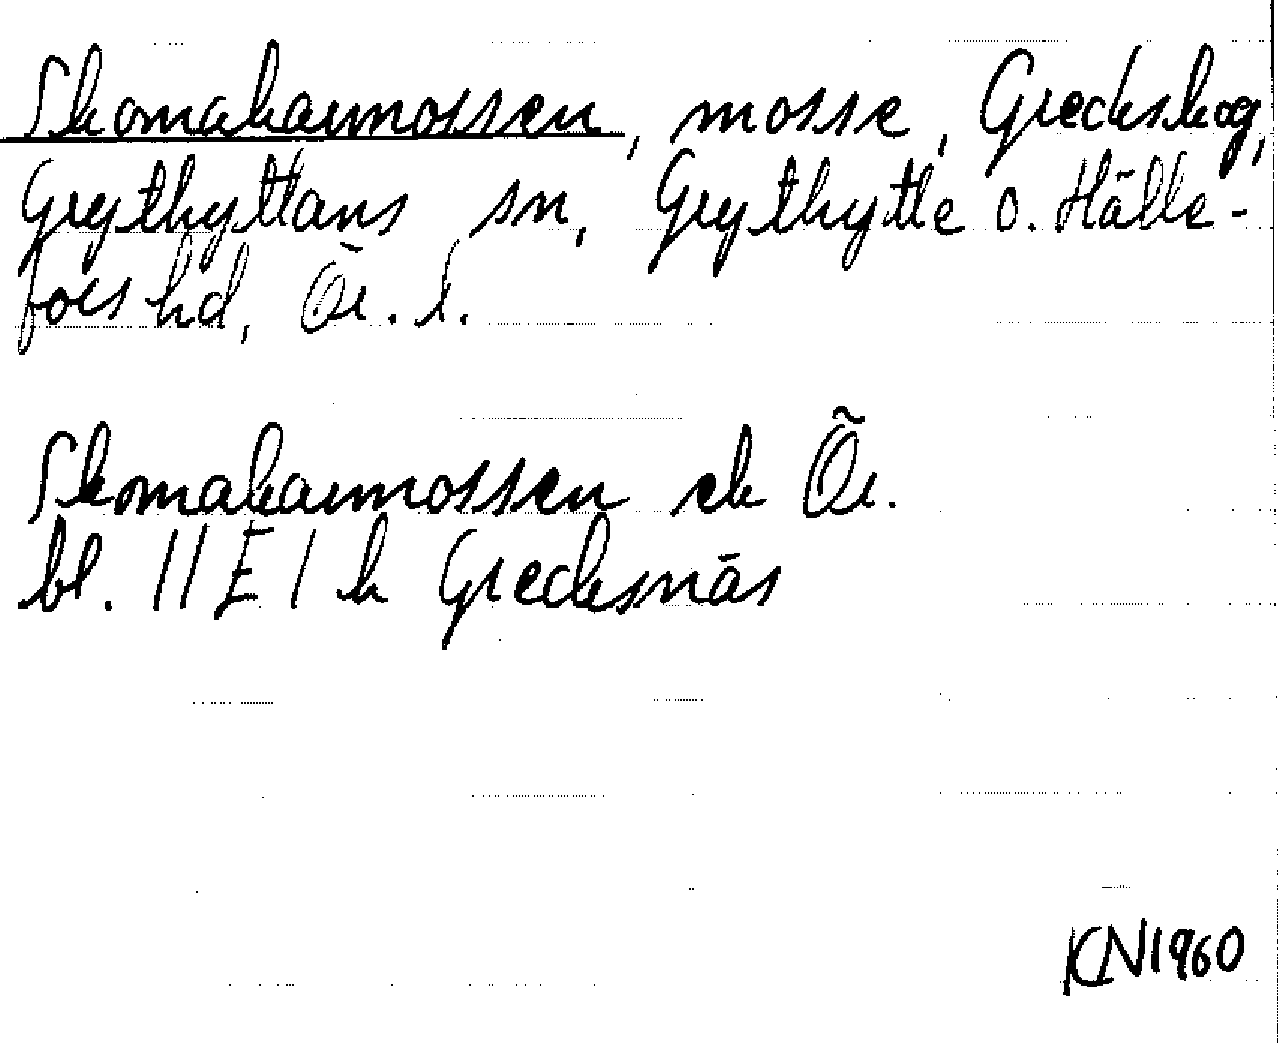 Skomakarmossen, mosse, Grecksskog,
Grythyttans sn, Grythytte o. Hälle-
fors hd, Ör. l.
Skomakarmossen ek Ör.
bl. 11 E 1 h Grecksnäs
KN1960